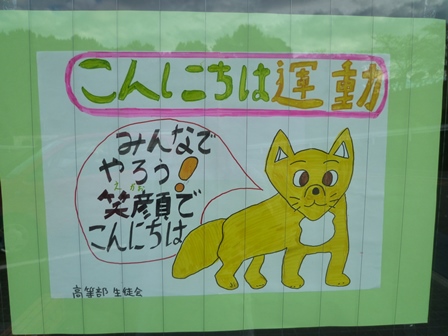 こんにちは運動
みんなで
やろう!
えがお
笑顔で
こんにちは
高等部 生徒会